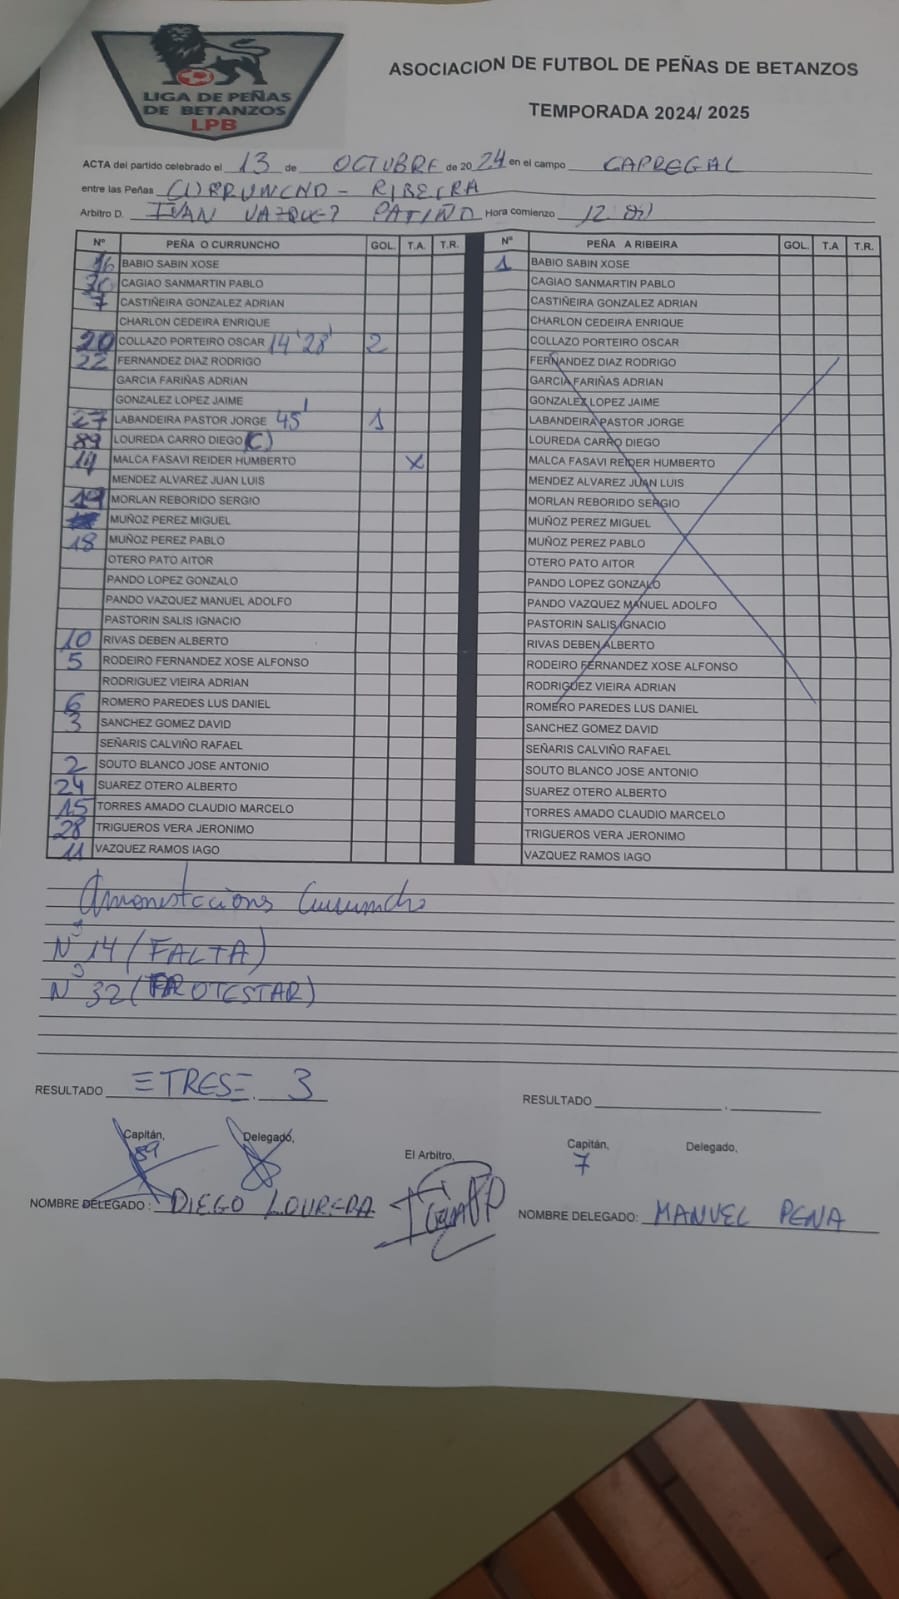 LIGA DE PEÑAS
DE BETANZOS
LPB
ASOCIACION DE FUTBOL DE PEÑAS DE BETANZOS
TEMPORADA 2024/ 2025
ACTA del partido celebrado el 13 de OCTUBRE de 2024 en el campo CARREGAL
entre las Peñas CURRUNCHO - RIBEIRA
Arbitro D. IVAN VAZQUEZ PATIÑO Hora comienzo 12
Nº PEÑA O CURRUNCHO GOL. T.A. T.R. Nº PEÑA A RIBEIRA GOL. T.A T.R.
16 BABIO SABIN XOSE 1 BABIO SABIN XOSE
CAGIAO SANMARTIN PABLO CAGIAO SANMARTIN PABLO
7 CASTIÑEIRA GONZALEZ ADRIAN CASTIÑEIRA GONZALEZ ADRIAN
CHARLON CEDEIRA ENRIQUE CHARLON CEDEIRA ENRIQUE
20 COLLAZO PORTEIRO OSCAR 14' 28' 2 COLLAZO PORTEIRO OSCAR
22 FERNANDEZ DIAZ RODRIGO FERNANDEZ DIAZ RODRIGO
GARCIA FARIÑAS ADRIAN GARCIA FARIÑAS ADRIAN
GONZALEZ LOPEZ JAIME GONZALEZ LOPEZ JAIME
27 LABANDEIRA PASTOR JORGE 45' 1 LABANDEIRA PASTOR JORGE
89 LOUREDA CARRO DIEGO (C) LOUREDA CARRO DIEGO
14 MALCA FASAVI REIDER HUMBERTO X MALCA FASAVI REIDER HUMBERTO
MENDEZ ALVAREZ JUAN LUIS MENDEZ ALVAREZ JUAN LUIS
19 MORLAN REBORIDO SERGIO MORLAN REBORIDO SERGIO
MUÑOZ PEREZ MIGUEL MUÑOZ PEREZ MIGUEL
18 MUÑOZ PEREZ PABLO MUÑOZ PEREZ PABLO
OTERO PATO AITOR OTERO PATO AITOR
PANDO LOPEZ GONZALO PANDO LOPEZ GONZALO
PANDO VAZQUEZ MANUEL ADOLFO PANDO VAZQUEZ MANUEL ADOLFO
PASTORIN SALIS IGNACIO PASTORIN SALIS IGNACIO
10 RIVAS DEBEN ALBERTO RIVAS DEBEN ALBERTO
5 RODEIRO FERNANDEZ XOSE ALFONSO RODEIRO FERNANDEZ XOSE ALFONSO
RODRIGUEZ VIEIRA ADRIAN RODRIGUEZ VIEIRA ADRIAN
6 ROMERO PAREDES LUS DANIEL ROMERO PAREDES LUS DANIEL
3 SANCHEZ GOMEZ DAVID SANCHEZ GOMEZ DAVID
SEÑARIS CALVIÑO RAFAEL SEÑARIS CALVIÑO RAFAEL
2 SOUTO BLANCO JOSE ANTONIO SOUTO BLANCO JOSE ANTONIO
24 SUAREZ OTERO ALBERTO SUAREZ OTERO ALBERTO
15 TORRES AMADO CLAUDIO MARCELO TORRES AMADO CLAUDIO MARCELO
28 TRIGUEROS VERA JERONIMO TRIGUEROS VERA JERONIMO
11 VAZQUEZ RAMOS IAGO VAZQUEZ RAMOS IAGO
Amonestacions Curruncho
Nº 14 (FALTA)
Nº 32 (PROTESTAR)
RESULTADO =TRES= 3 RESULTADO
Capitán, Delegado, El Arbitro, Capitán, Delegado,
89 7
NOMBRE DELEGADO : DIEGO LOUREDA NOMBRE DELEGADO: MANUEL PENA